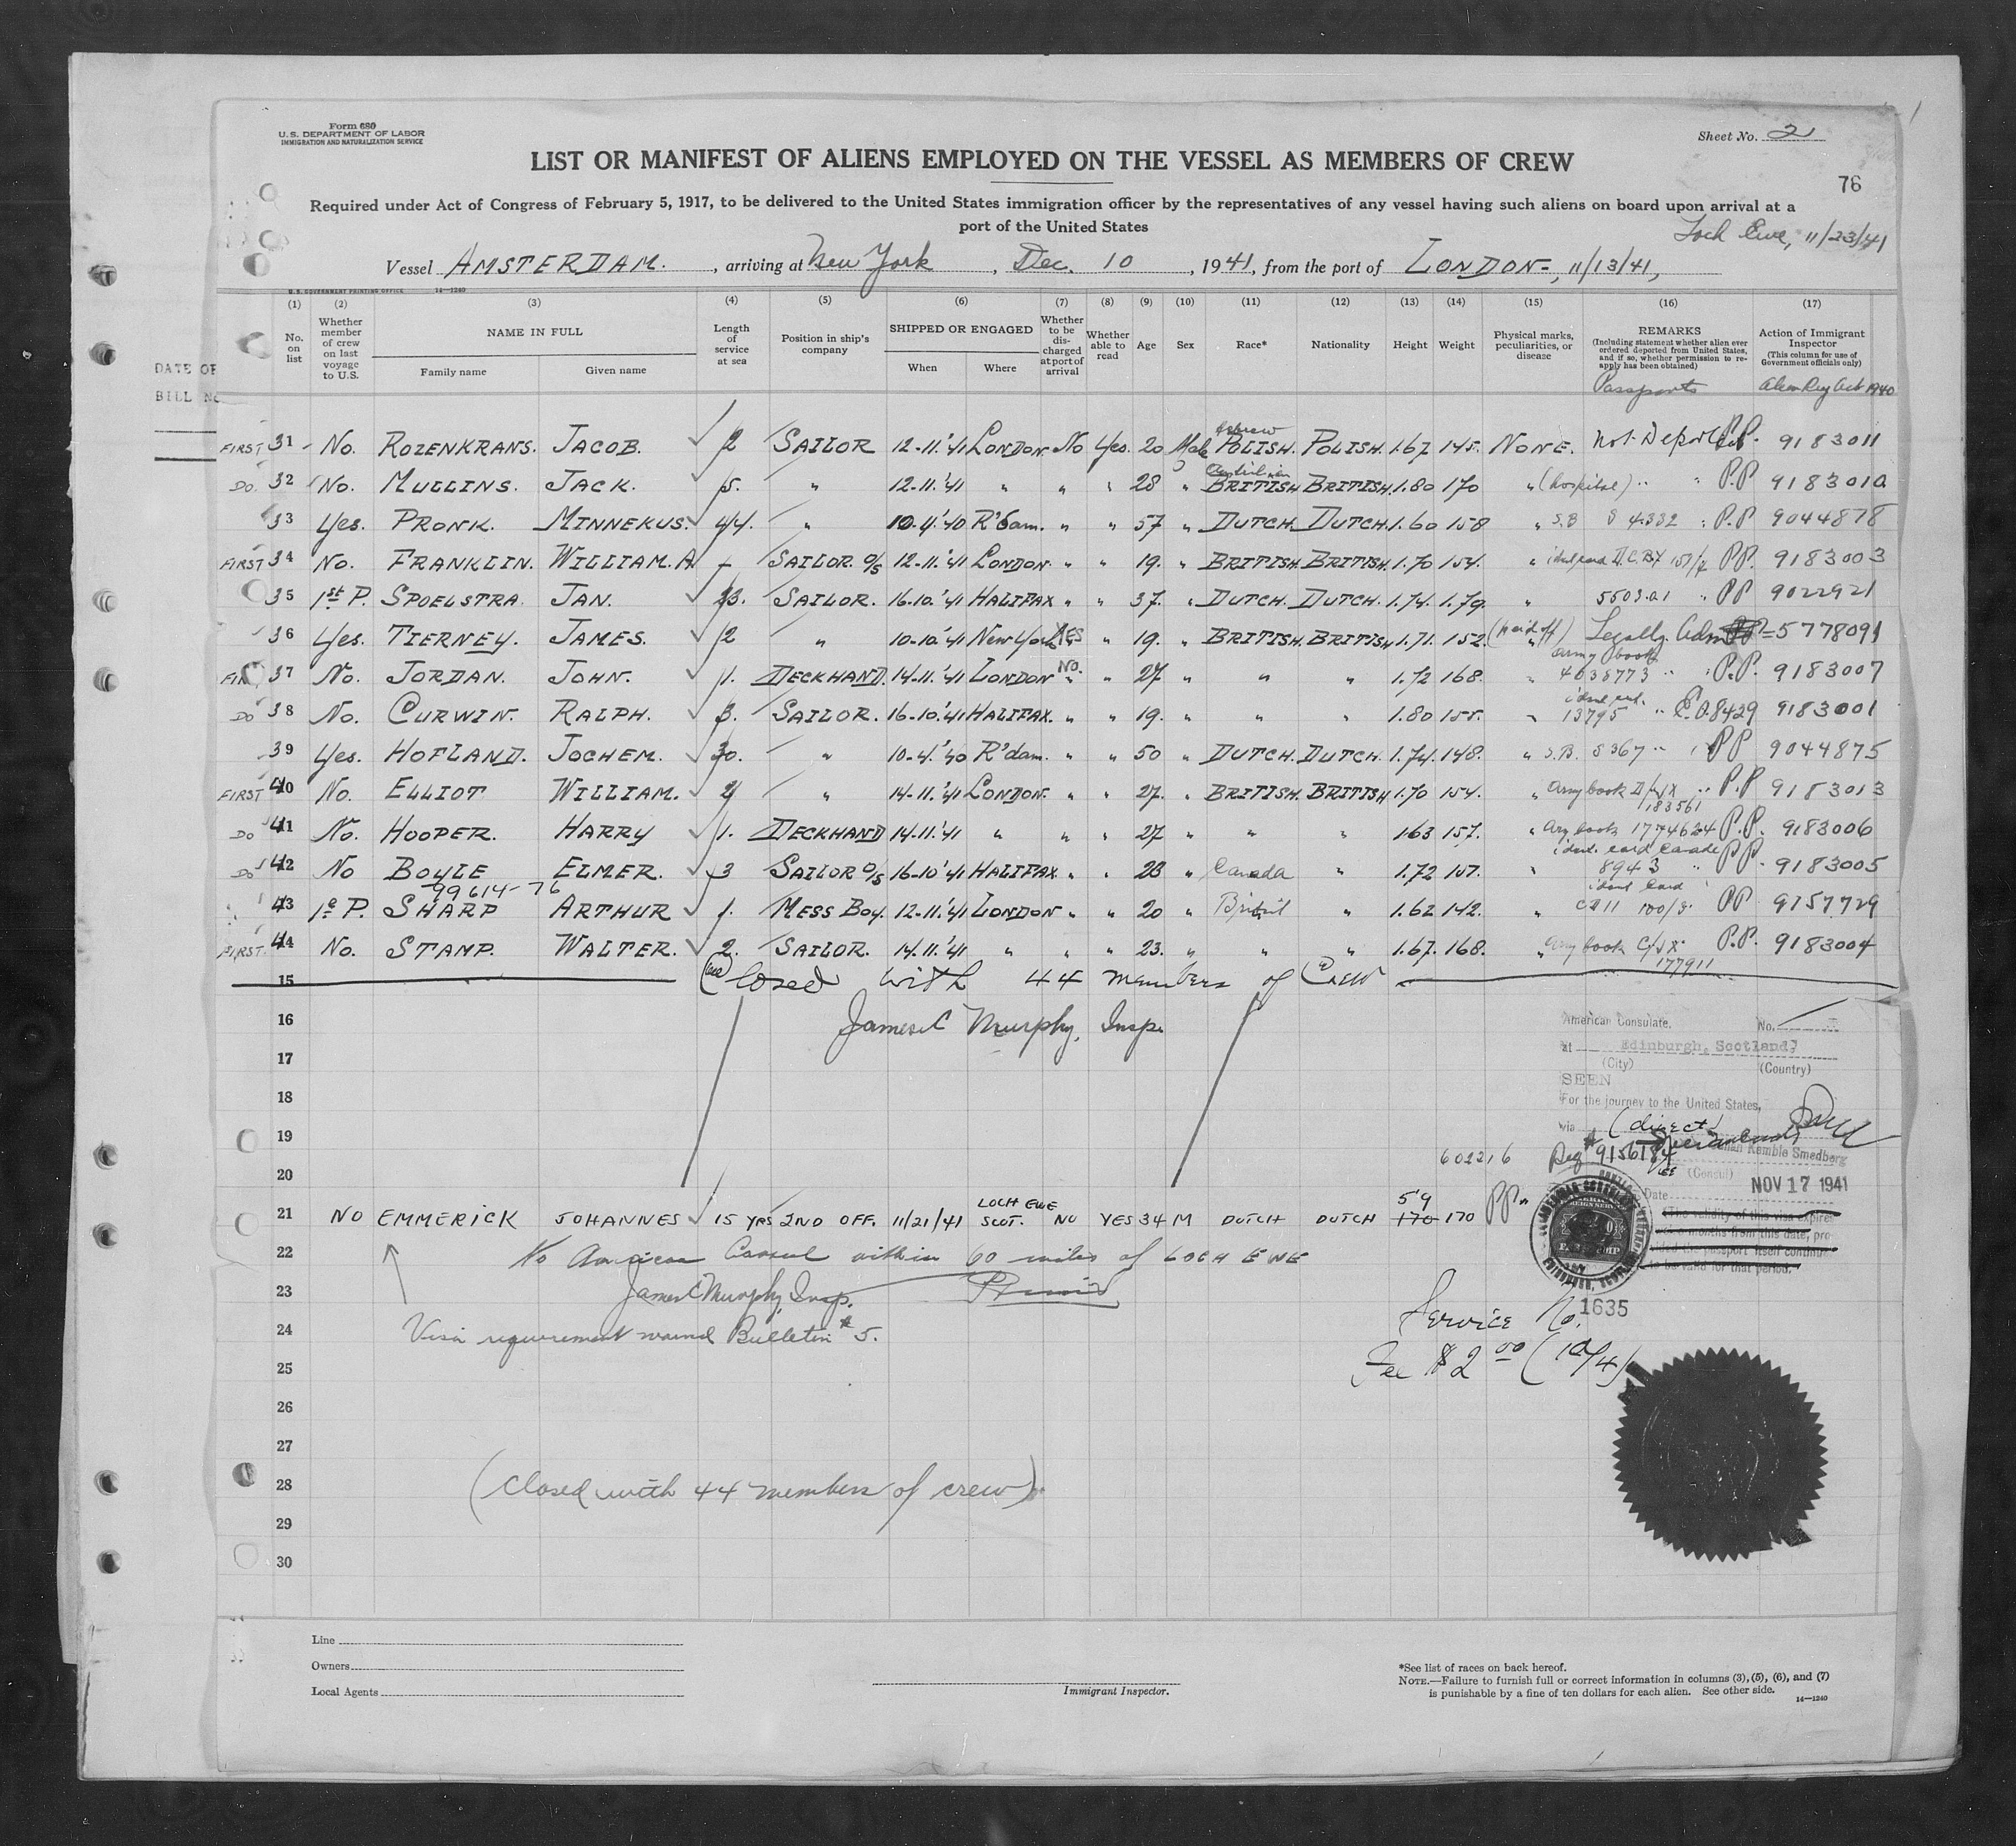 Form 680
U.S. DEPARTMENT OF LABOR
IMMIGRATION AND NATURALIZATION SERVICE
Sheet No. 2
LIST OR MANIFEST OF ALIENS EMPLOYED ON THE VESSEL AS MEMBERS OF CREW
76
Required under Act of Congress of February 5, 1917, to be delivered to the United States immigration officer by the representatives of any vessel having such aliens on board upon arrival at a
port of the United States
Loch Ewe, 11/23/41
Vessel AMSTERDAM. , arriving at New York , Dec. 10 , 1941, from the port of LONDON-, 11/13/41,
U.S. GOVERNMENT PRINTING OFFICE 14—1240
(1) (2) (3) (4) (5) (6) (7) (8) (9) (10) (11) (12) (13) (14) (15) (16) (17)
No. on list
Whether member of crew on last voyage to U.S.
NAME IN FULL
Family name Given name
Length of service at sea
Position in ship's company
SHIPPED OR ENGAGED
When Where
Whether to be discharged at port of arrival
Whether able to read
Age
Sex
Race*
Nationality
Height
Weight
Physical marks, peculiarities, or disease
REMARKS
(Including statement whether alien ever ordered deported from United States, and if so, whether permission to reapply has been obtained)
Passports
Action of Immigrant Inspector
(This column for use of Government officials only)
Alien Reg Act 1940
DATE OF
BILL NO
FIRST 31 No. ROZENKRANS. JACOB. 2 SAILOR 12-11-'41 LONDON No Yes. 20 Male Hebrew POLISH. POLISH. 1.67 145. NONE. Not Deported P.P. 9183011
DO. 32 No. MULLINS. JACK. 5. " 12-11-'41 " " " 28 " BRITISH BRITISH. 1.80 170 " (hospital) " " P.P 9183010
33 Yes. PRONK. MINNEKUS. 44. " 10-4-'40 R'dam. " " 57 " DUTCH. DUTCH. 1.60 158 " S.B S 4332 " P.P 9044878
FIRST 34 No. FRANKLIN. WILLIAM. A - SAILOR O/S 12-11-'41 LONDON. " " 19. " BRITISH. BRITISH. 1.70 154. " P.P. 9183003
35 1st P. SPOELSTRA. JAN. 23. SAILOR. 16-10-'41 HALIFAX " " 37. " DUTCH. DUTCH. 1.74. 1.79. " 5503.01 " PP 9022921
36 Yes. TIERNEY. JAMES. 2 " 10-10-'41 New York YES " 19. " BRITISH. BRITISH. 1.71. 152. (paid off) Legally Adm = 5778091
37 No. JORDAN. JOHN. 1. DECKHAND. 14-11-'41 LONDON No. " 27 " " " 1.72 168. " Army book 4038773 " P.P. 9183007
DO 38 No. CURWIN. RALPH. 3. SAILOR. 16-10-'41 HALIFAX. " " 19. " " " 1.80 155. " 13795 " 8429 9183001
39 Yes. HOFLAND. JOCHEM. 30. " 10-4-'40 R'dam. " " 50 " DUTCH. DUTCH. 1.74. 148. " S.B. S 367 " PP 9044875
FIRST 40 No. ELLIOT WILLIAM. 2 " 14-11-'41 LONDON. " " 27. " BRITISH. BRITISH 1.70 154. " Army book D/JX 183561 " P.P 9183013
DO 41 No. HOOPER. HARRY 1. DECKHAND 14-11-'41 " " " 27 " " " 1.63 157. " Army book 1774624 P.P. 9183006
DO 42 No BOYLE ELMER. 3 SAILOR O/S 16-10-'41 HALIFAX " " 28 " Canada " 1.72 157. " ident. card Canada 8943 " PP. 9183005
99614-76
43 1e P. SHARP ARTHUR 1. MESS BOY. 12-11-'41 LONDON " " 20 " British " 1.62 142. " ident Card 100/3 PP 9157729
FIRST. 44 No. STAMP. WALTER. 2. SAILOR. 14-11-'41 " " " 23. " " " 1.67. 168. " Army book C/JX 177911 P.P. 9183004
15 Closed with 44 members of Crew
16 James C Murphy, Insp.
17
18
19
20
American Consulate. No.
at Edinburgh, Scotland.
(City) (Country)
SEEN
For the journey to the United States,
via (direct)
602216 Reg # 9156184
Kemble Smedberg
(Consul)
Date NOV 17 1941
The validity of this visa expires
months from this date, pro-
vided the passport itself continues
to be valid for that period.
21 NO EMMERICK JOHANNES 15 YRS 2ND OFF. 11/21/41 LOCH EWE SCOT. NO YES 34 M DUTCH DUTCH 59 170 170 PP "
22 No American Consul within 60 miles of LOCH EWE
23 James C Murphy, Insp.
24 Visa requirement waived Bulletin # 5.
Service No. 1635
Fee $2 00 (10/4)
25
26
27
28 (Closed with 44 members of crew)
29
30
Line
Owners
Local Agents
Immigrant Inspector.
*See list of races on back hereof.
NOTE.—Failure to furnish full or correct information in columns (3), (5), (6), and (7)
is punishable by a fine of ten dollars for each alien. See other side.
14—1240